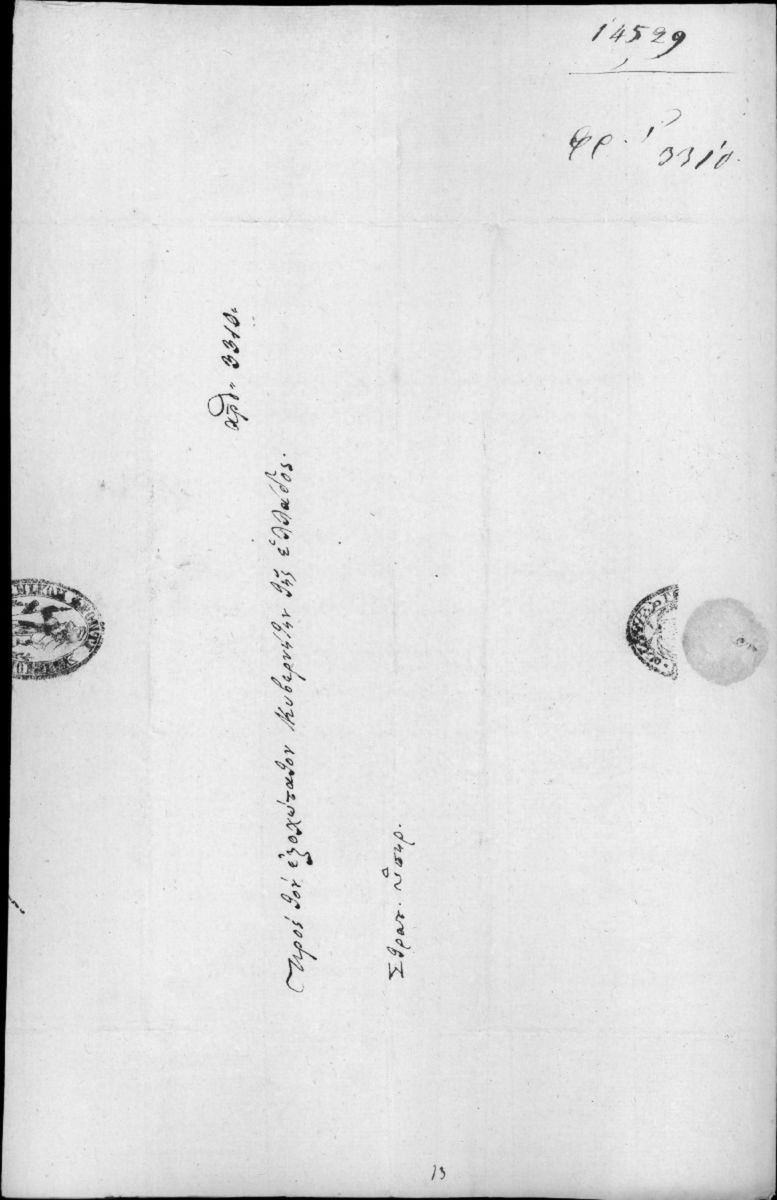 14529
3310
αρθ. 3310.
Πρὸς τὸν ἐξοχώτατον Κυβερνήτην τῆς ἑλλάδος.
Στρατ. ὑπηρ.
13